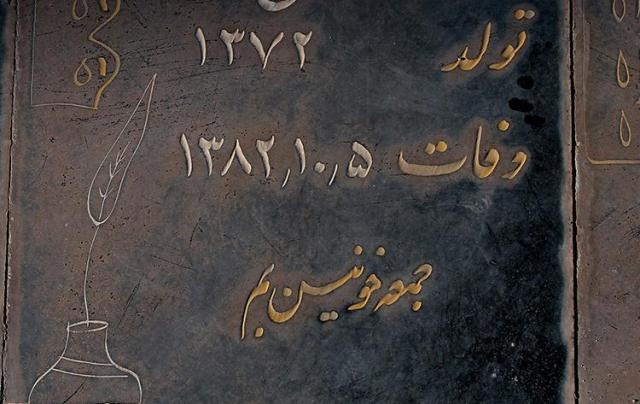 تولد ۱۳۷۲
وفات ۱۳۸۲٫۱۰٫۵
جمعه خونین بم